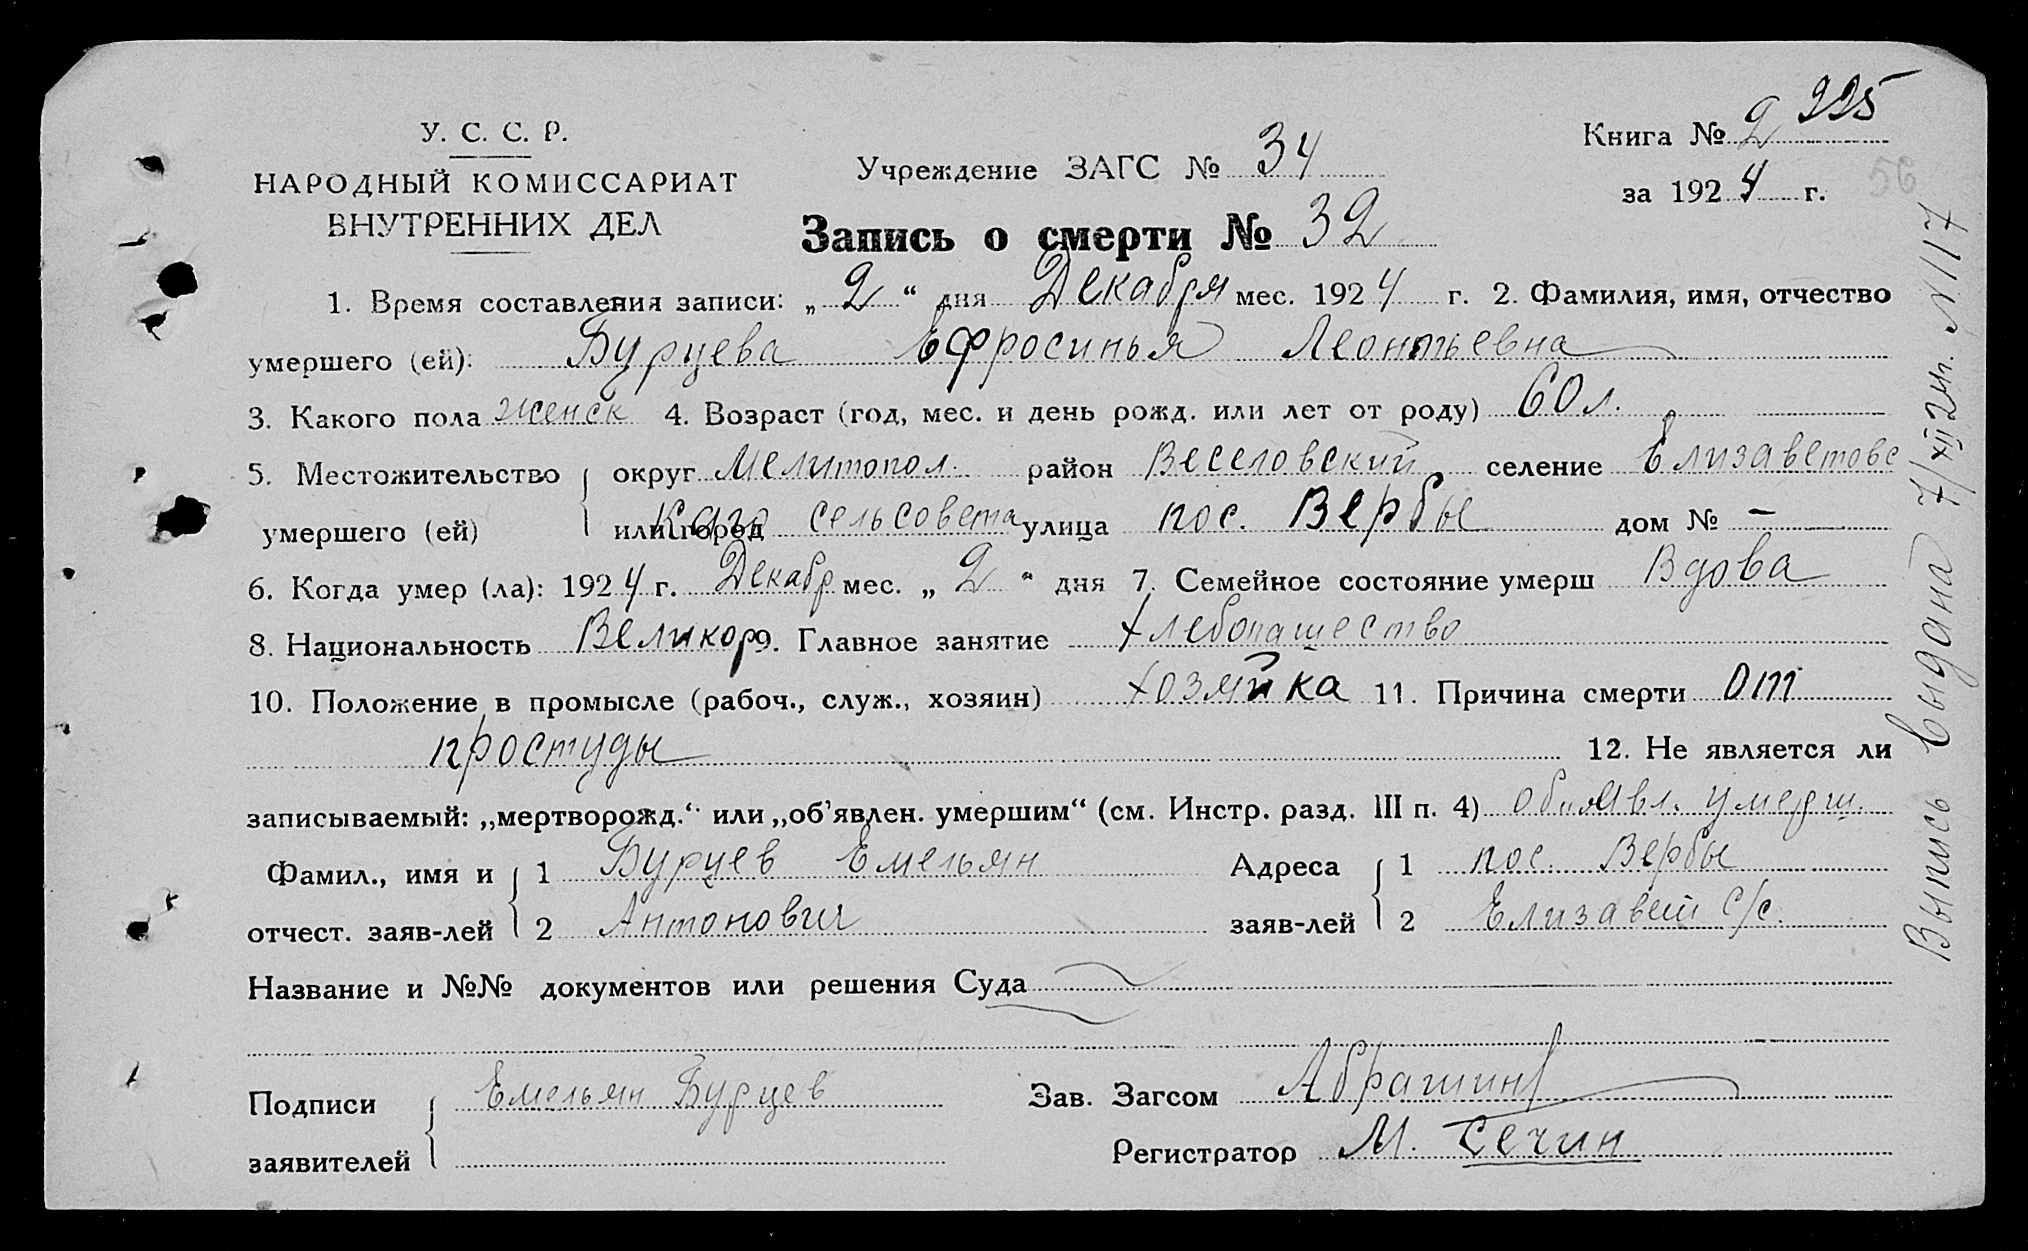 225
У. С. С. Р.
НАРОДНЫЙ КОМИССАРИАТ
ВНУТРЕННИХ ДЕЛ
Учреждение ЗАГС № 34
Книга № 2
за 1924 г.
56
Запись о смерти № 32
1. Время составления записи: „2“ дня Декабря мес. 1924 г. 2. Фамилия, имя, отчество
умершего (ей): Бурцева Ефросинья Леонтьевна
3. Какого пола женск 4. Возраст (год, мес. и день рожд. или лет от роду) 60 л.
5. Местожительство округ Мелитопол. район Веселовский селение Елизаветовс
умершего (ей) или город каго сельсовета улица пос. Вербы дом № —
6. Когда умер (ла): 1924 г. Декабр мес. „2“ дня 7. Семейное состояние умерш Вдова
8. Национальность Великор 9. Главное занятие хлебопашество
10. Положение в промысле (рабоч., служ., хозяин) хозяйка 11. Причина смерти от
простуды 12. Не является ли
записываемый: „мертворожд.“ или „об’явлен. умершим“ (см. Инстр. разд. III п. 4) об"явл. умерш.
Фамил., имя и 1 Бурцев Емельян Адреса 1 пос. Вербы
отчест. заяв-лей 2 Антонович заяв-лей 2 Елизавет с/с.
Название и №№ документов или решения Суда
Подписи Емельян Бурцев Зав. Загсом Абрашин
заявителей Регистратор М. Сечин
Выпись выдана 7/XII 24 г. № 117